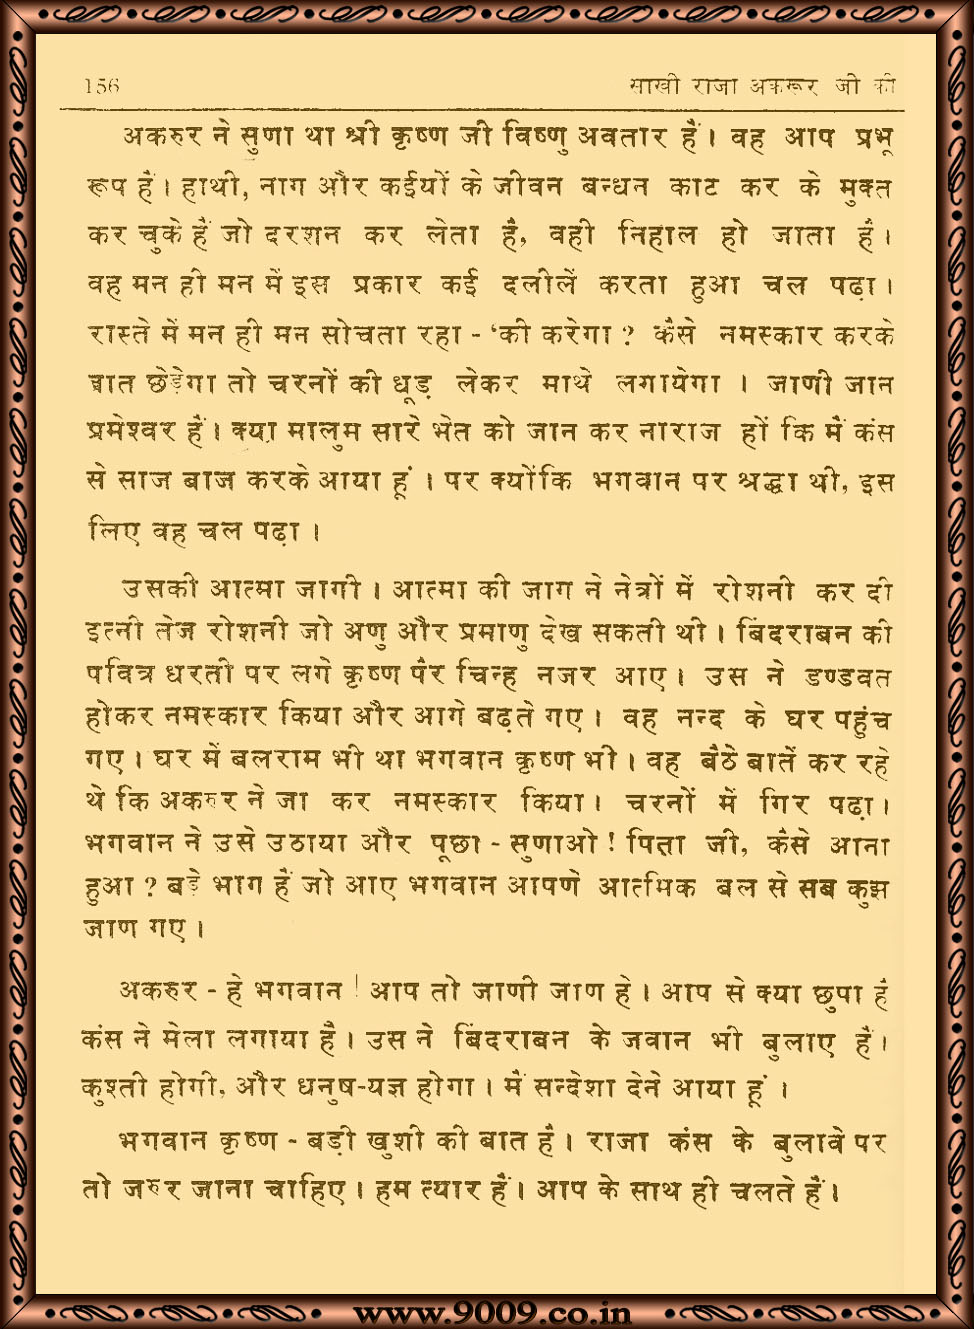 156 साखी राजा अकरूर जी की
अकरुर ने सुणा था श्री कृष्ण जी विष्णु अवतार हैं। वह आप प्रभू
रूप हैं। हाथी, नाग और कईयों के जीवन बन्धन काट कर के मुक्त
कर चुके हैं जो दरशन कर लेता है, वही निहाल हो जाता है।
वह मन ही मन में इस प्रकार कई दलीलें करता हुआ चल पढ़ा।
रास्ते में मन ही मन सोचता रहा - ‘की करेगा ? कैसे नमस्कार करके
बात छेड़ेगा तो चरनों की धूड़ लेकर माथे लगायेगा । जाणी जान
प्रमेश्वर हैं। क्या मालुम सारे भेत को जान कर नाराज हों कि मैं कंस
से साज बाज करके आया हूं । पर क्योंकि भगवान पर श्रद्धा थी, इस
लिए वह चल पढ़ा ।
उसकी आत्मा जागी । आत्मा की जाग ने नेत्रों में रोशनी कर दी
इत्नी तेज रोशनी जो अणु और प्रमाणु देख सकती थी । बिंदराबन की
पवित्र धरती पर लगे कृष्ण पैर चिन्ह नजर आए। उस ने डण्डवत
होकर नमस्कार किया और आगे बढ़ते गए। वह नन्द के घर पहुंच
गए। घर में बलराम भी था भगवान कृष्ण भी । वह बैठे बातें कर रहे
थे कि अकरुर ने जा कर नमस्कार किया। चरनों में गिर पढ़ा।
भगवान ने उसे उठाया और पूछा - सुणाओ ! पिता जी, कैसे आना
हुआ ? बड़े भाग हैं जो आए भगवान आपणे आत्मिक बल से सब कुझ
जाण गए ।
अकरुर - हे भगवान ! आप तो जाणी जाण हे । आप से क्या छुपा है
कंस ने मेला लगाया है। उस ने बिंदराबन के जवान भी बुलाए हैं।
कुश्ती होगी, और धनुष-यज्ञ होगा । मैं सन्देशा देने आया हूं ।
भगवान कृष्ण - बड़ी खुशी की बात है। राजा कंस के बुलावे पर
तो जरुर जाना चाहिए । हम त्यार हैं। आप के साथ ही चलते हैं।
www.9009.co.in